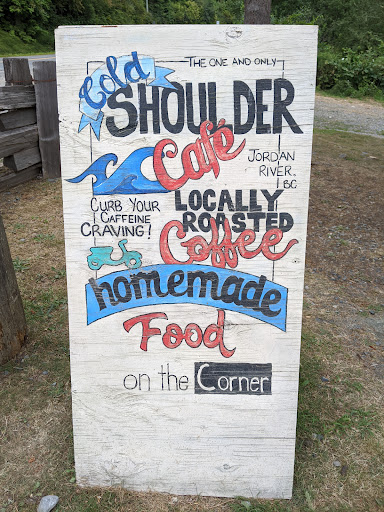 THE ONE AND ONLY
Cold
SHOULDER
Café
JORDAN
RIVER,
BC
CURB YOUR
CAFFEINE
CRAVING!
LOCALLY
ROASTED
Coffee
homemade
Food
on the Corner